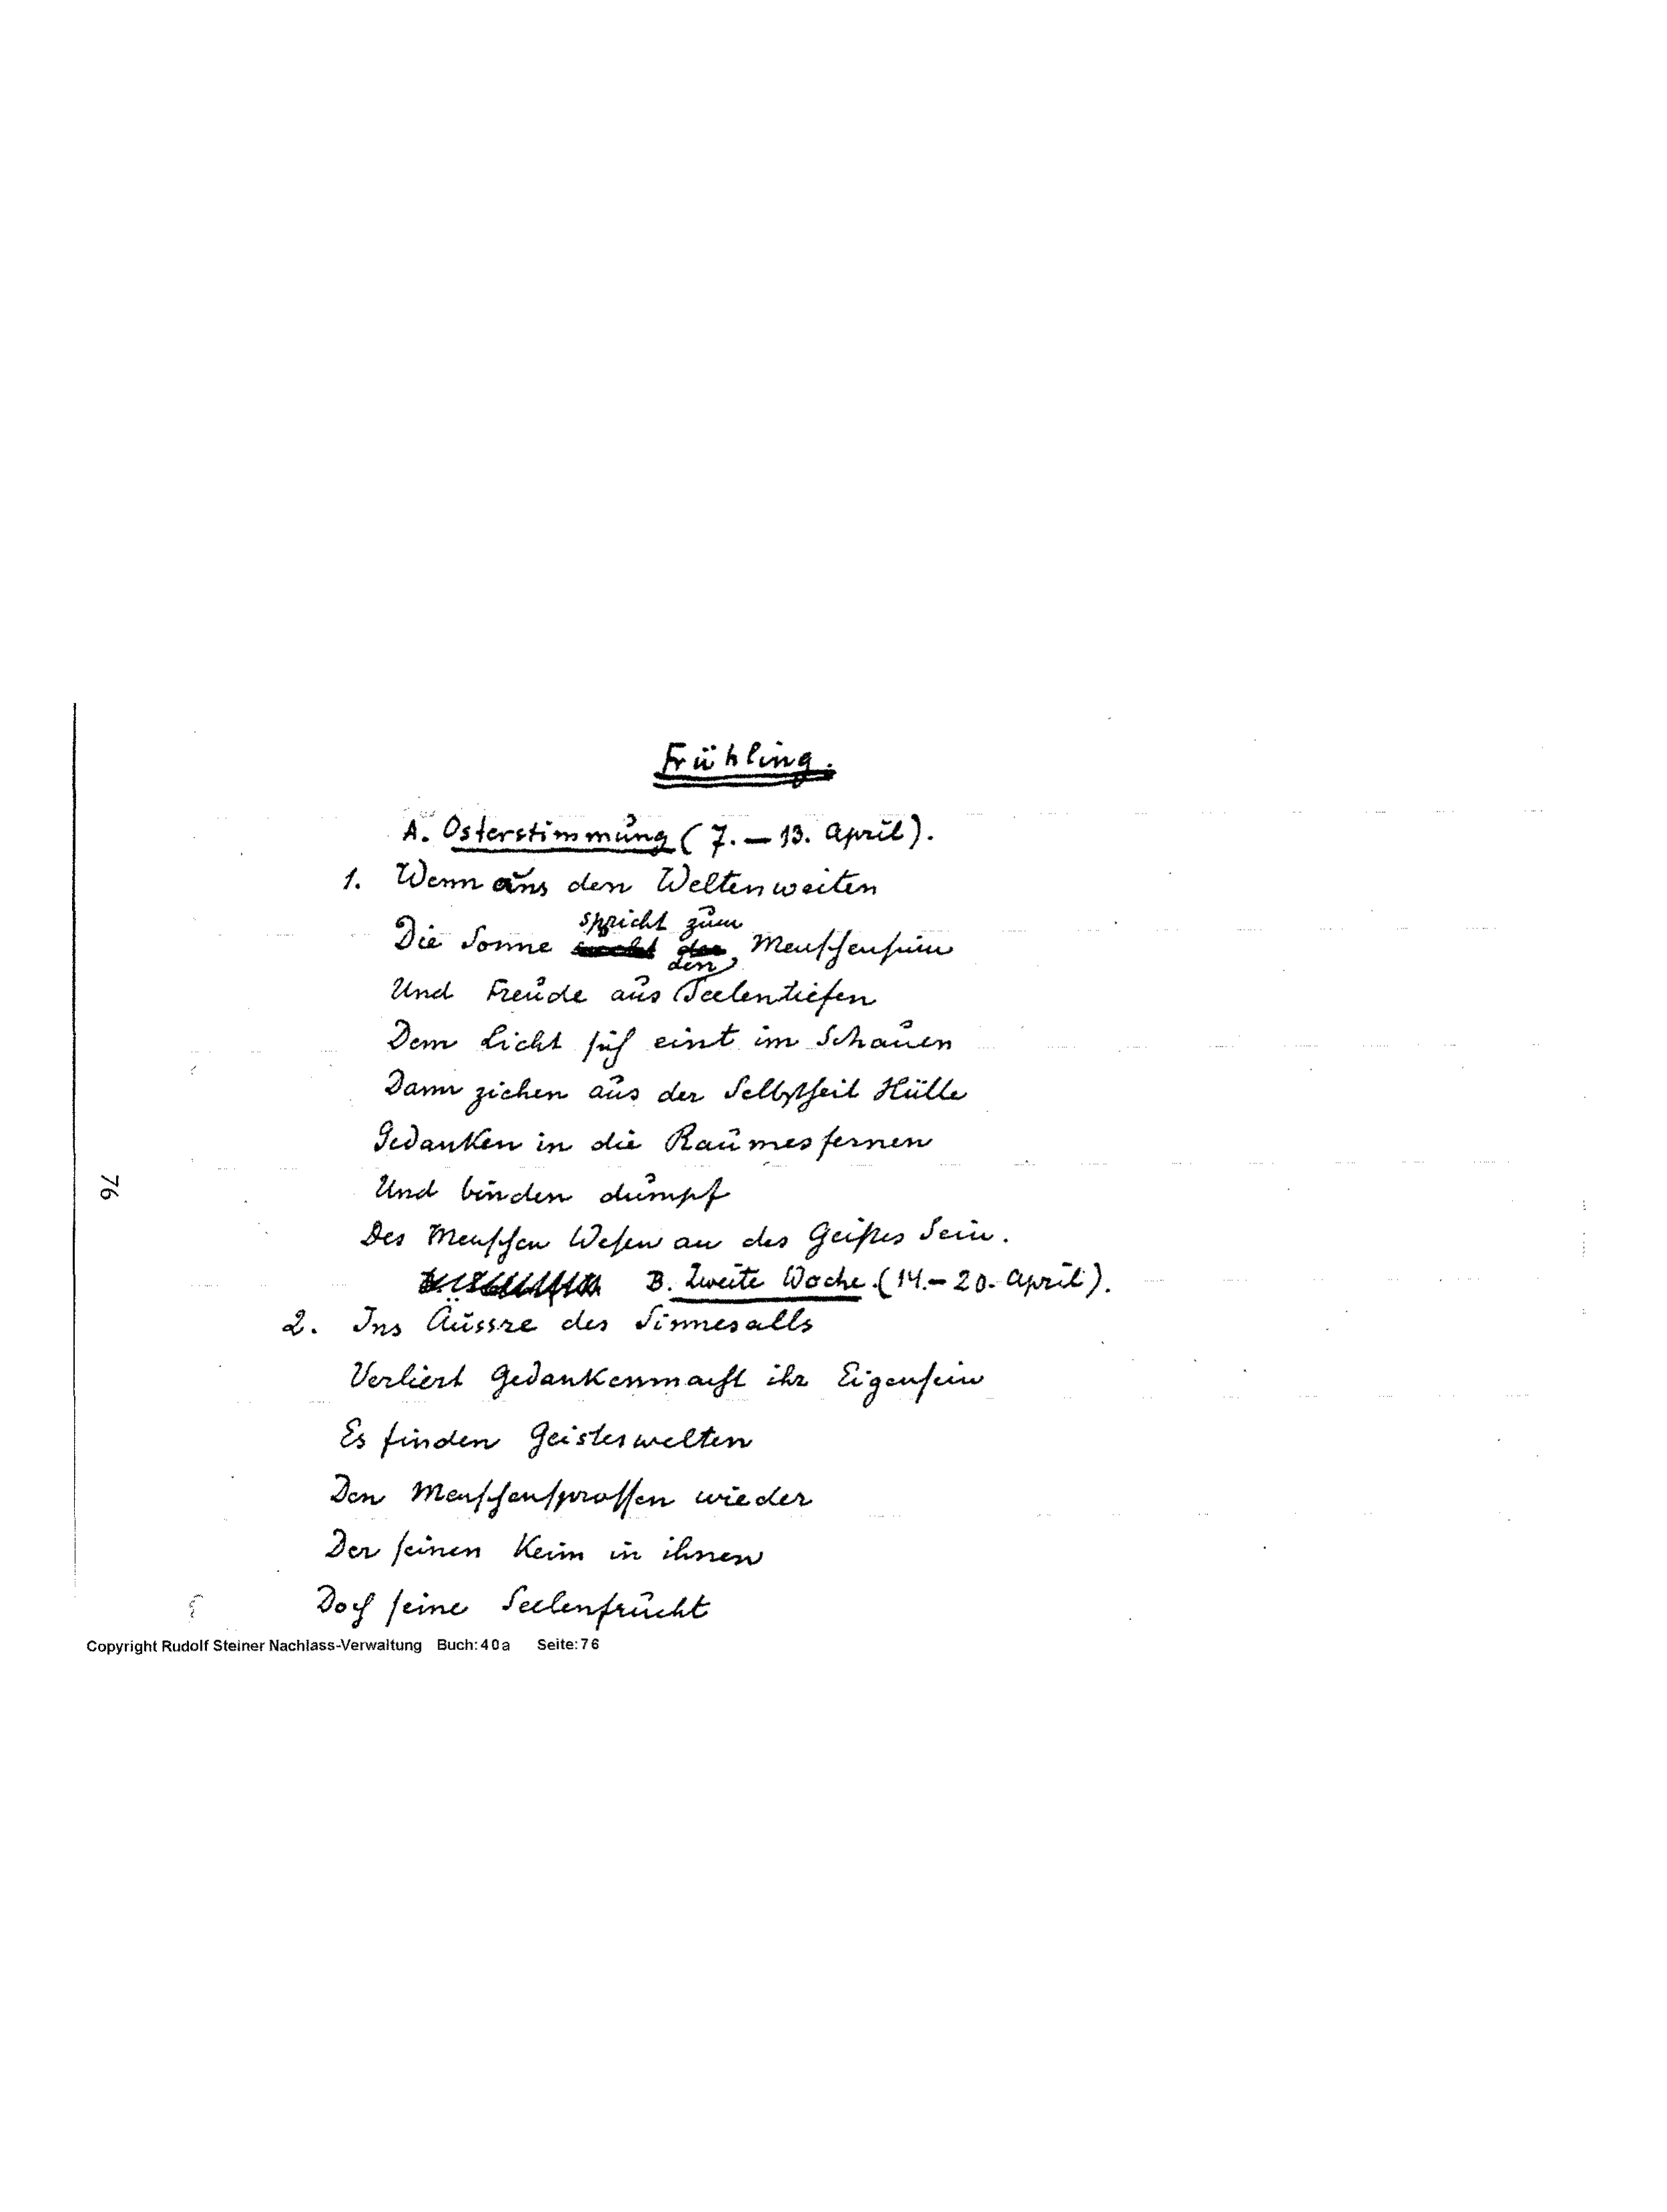 Frühling.
A. Osterstimmung (7. – 13. April).
1. Wenn aus den Weltenweiten
spricht zum
Die Sonne Menschensinn
den
Und Freude aus Seelentiefen
Dem Licht sich eint im Schauen
Dann ziehen aus der Selbstheit Hülle
Gedanken in die Raumesfernen
Und binden dumpf
Des Menschen Wesen an des Geistes Sein.
B. Zweite Woche (14. – 20. April).
2. Ins Äussre des Sinnesalls
Verliert Gedankenmacht ihr Eigensein
Es finden Geisteswelten
Den Menschensprossen wieder
Der seinen Keim in ihnen
Doch seine Seelenfrucht
76
Copyright Rudolf Steiner Nachlass-Verwaltung Buch: 40a Seite: 76